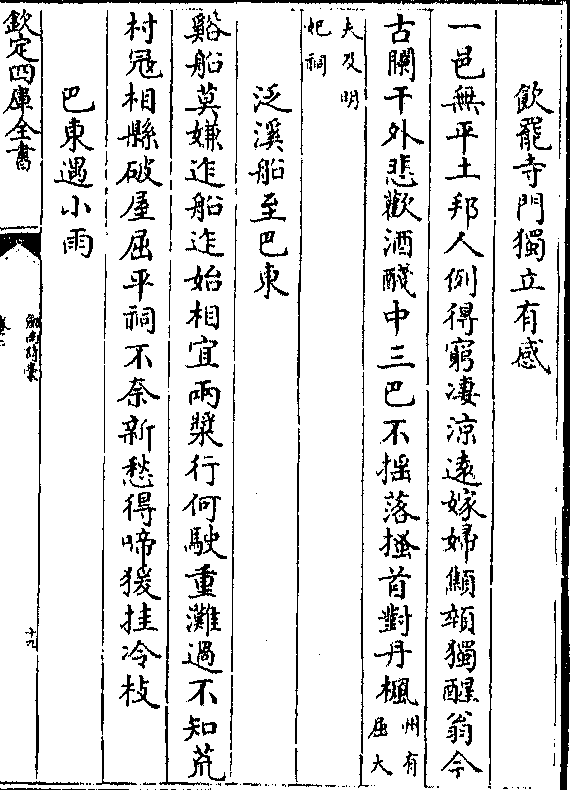 飲罷寺門獨立有感
一邑無平土邦人例得窮凄涼遠嫁婦顦顇獨醒翁今
古闌干外悲歡酒醆中三巴不揺落搔首對丹楓州有
屈大
夫及明
妃祠
泛溪船至巴東
谿船莫嫌迮船迮始相宜兩槳行何駛重灘過不知荒
村冦相縣破屋屈平祠不奈新愁得啼猨挂冷枝
巴東遇小雨
欽定四庫全書
劍南詩稾
卷二
十九